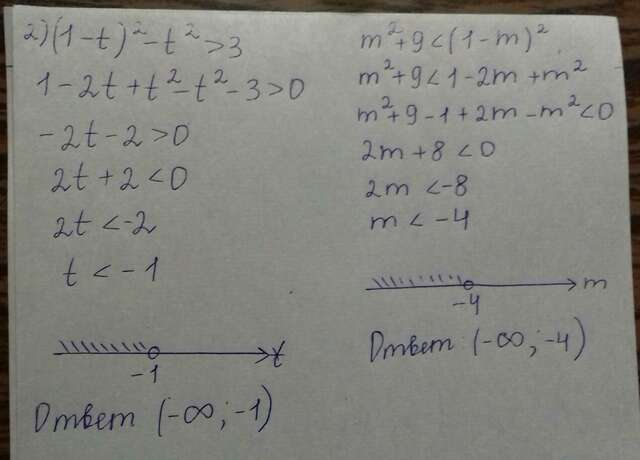 2) (1-t)²-t²>3
1-2t+t²-t²-3>0
-2t-2>0
2t+2<0
2t<-2
t<-1
-1
t
Ответ (-∞; -1)
m²+9<(1-m)²
m²+9<1-2m+m²
m²+9-1+2m-m²<0
2m+8<0
2m<-8
m<-4
m
-4
Ответ (-∞; -4)